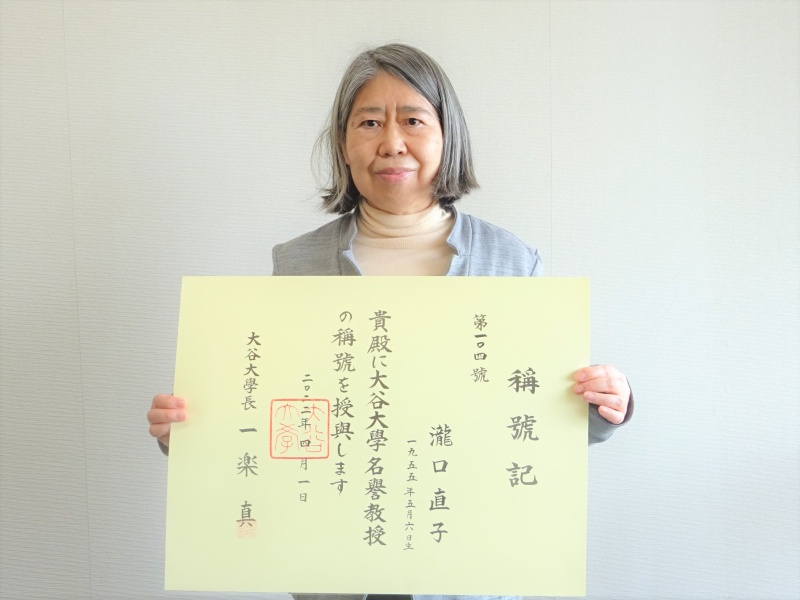 稱號記
第一〇四號
瀧口直子
一九五五年五月六日生
貴殿に大谷大學名譽教授
の稱號を授與します
二〇二二年四月一日
大谷大學長 一楽真